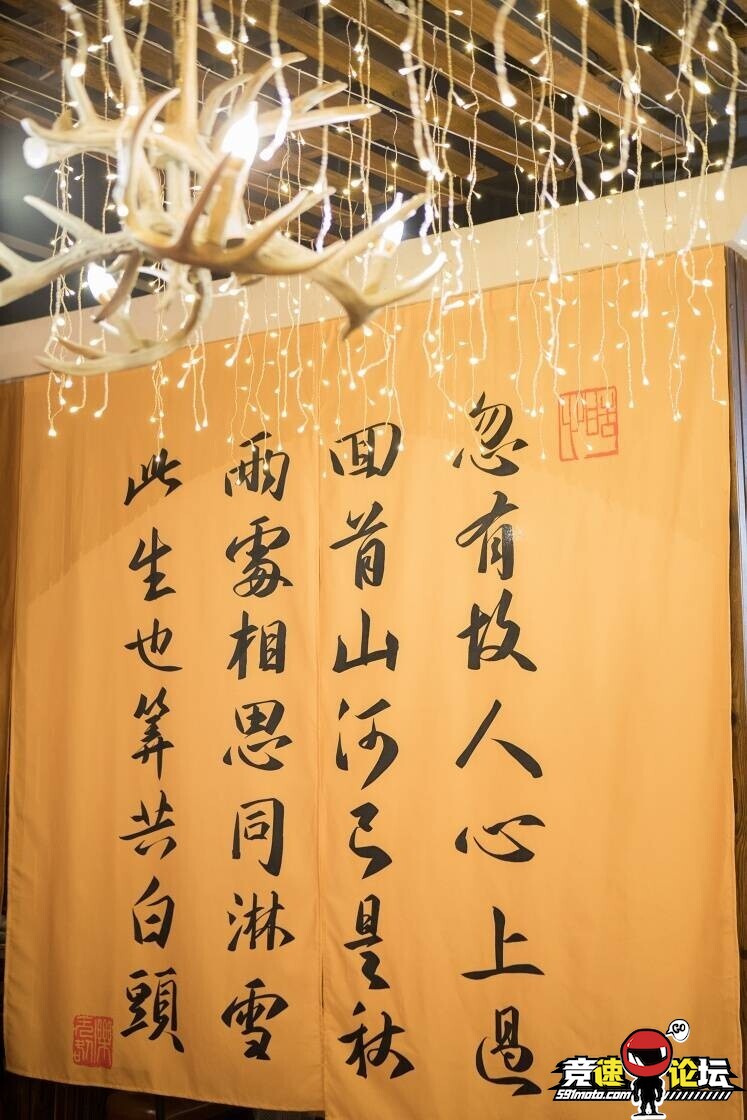 忽有故人心上過
回首山河已是秋
兩處相思同淋雪
此生也算共白頭
GO
竞速论坛
591moto.com